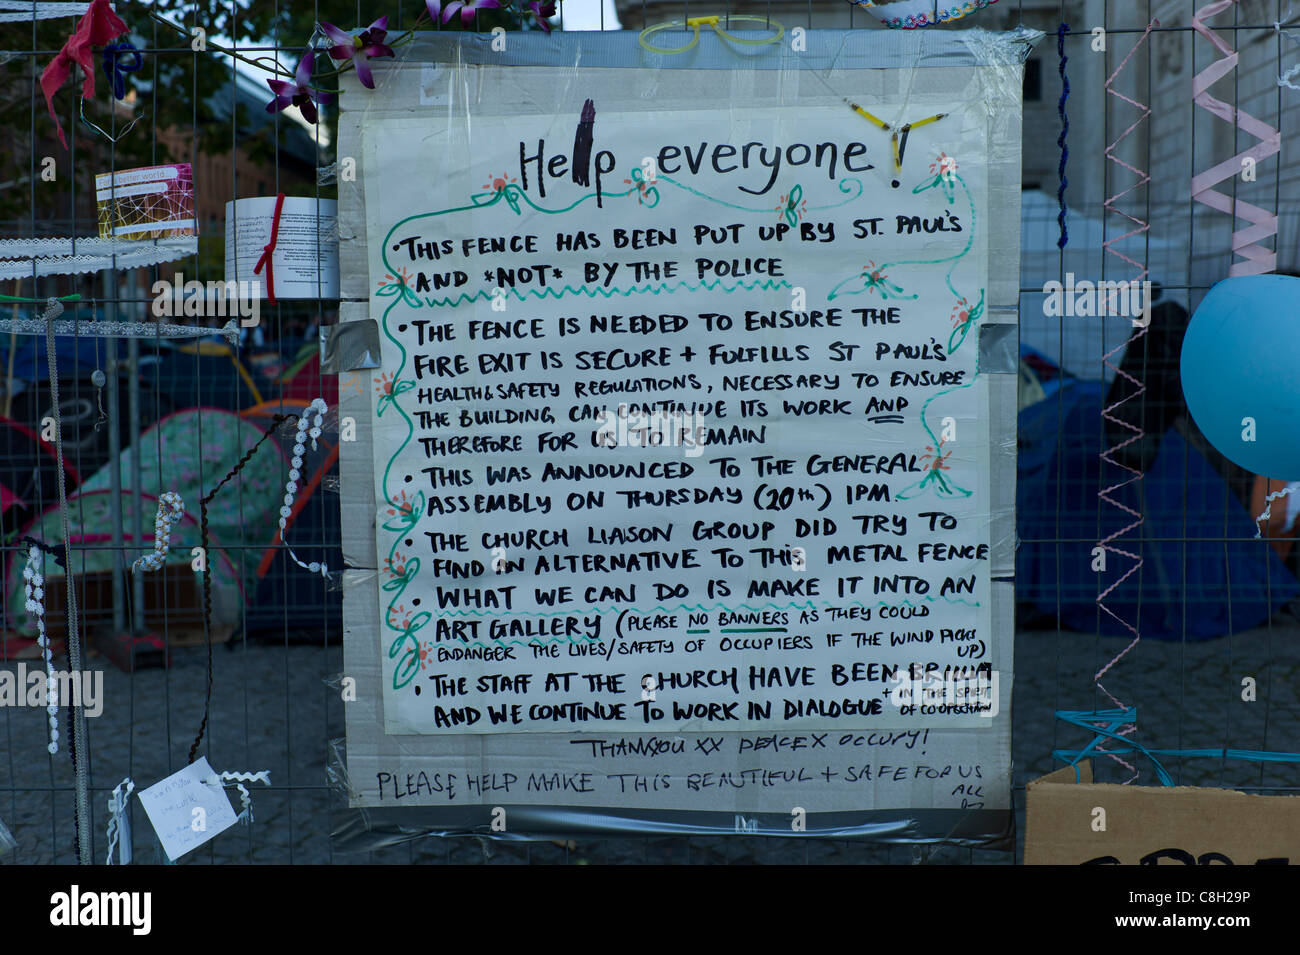 Help everyone!
• THIS FENCE HAS BEEN PUT UP BY ST. PAUL'S
AND *NOT* BY THE POLICE
• THE FENCE IS NEEDED TO ENSURE THE
FIRE EXIT IS SECURE + FULFILLS ST PAUL'S
HEALTH & SAFETY REGULATIONS, NECESSARY TO ENSURE
THE BUILDING CAN CONTINUE ITS WORK AND
THEREFORE FOR US TO REMAIN
• THIS WAS ANNOUNCED TO THE GENERAL
ASSEMBLY ON THURSDAY (20th) 1PM
• THE CHURCH LIAISON GROUP DID TRY TO
FIND AN ALTERNATIVE TO THIS METAL FENCE
• WHAT WE CAN DO IS MAKE IT INTO AN
ART GALLERY (PLEASE NO BANNERS AS THEY COULD
ENDANGER THE LIVES/SAFETY OF OCCUPIERS IF THE WIND PICKS
UP)
• THE STAFF AT THE CHURCH HAVE BEEN BRILLIANT
AND WE CONTINUE TO WORK IN DIALOGUE + IN THE SPIRIT
OF COOPERATION
THANKYOU XX PEACE X OCCUPY!
PLEASE HELP MAKE THIS BEAUTIFUL + SAFE FOR US
ALL
a better world...
alamy
Image ID: C8H29P
www.alamy.com